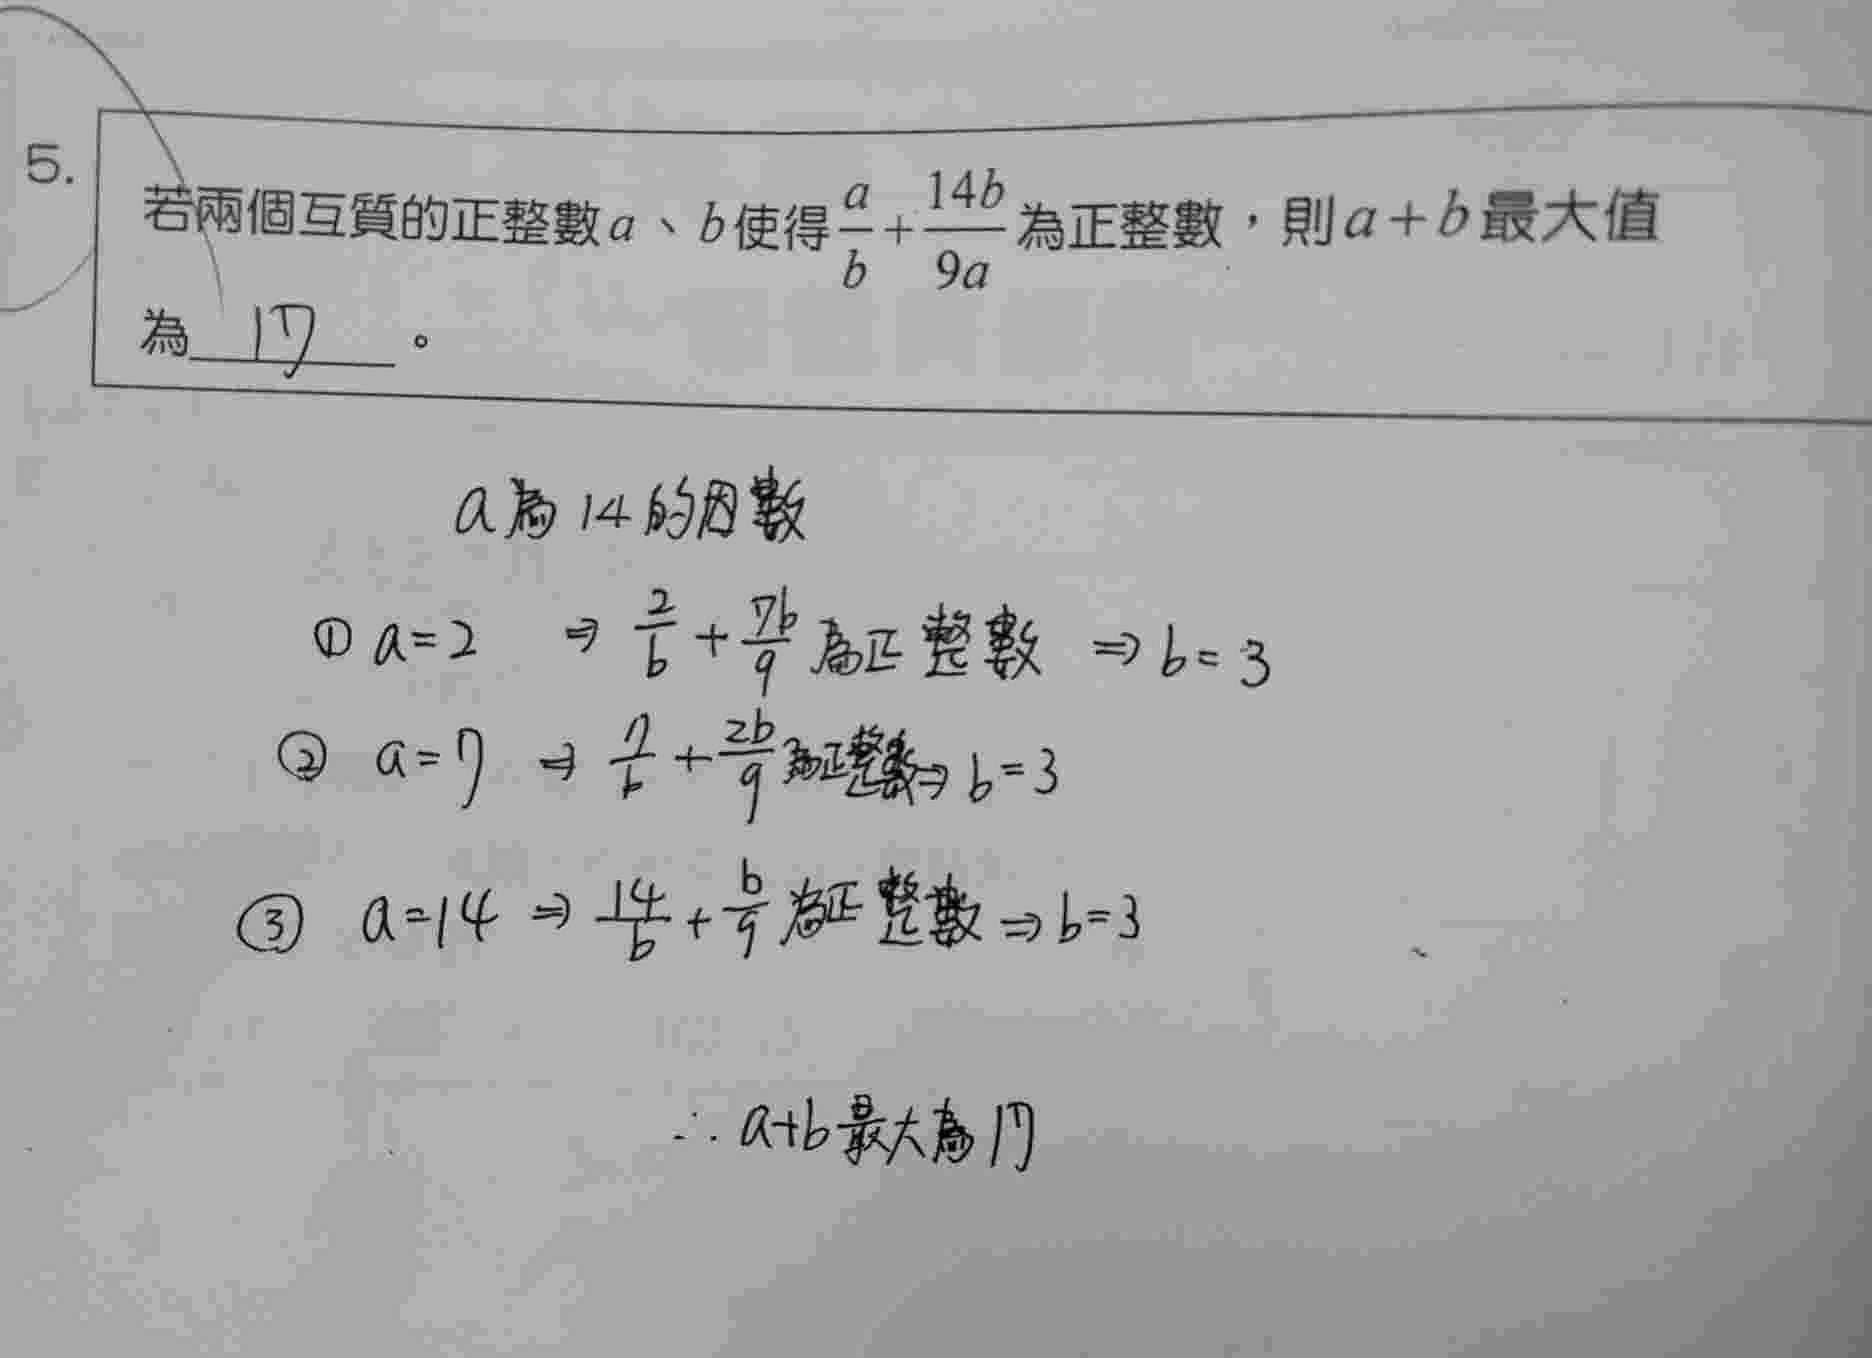 5.
若兩個互質的正整數a、b使得a/b+14b/9a為正整數,則a+b最大值
為 17 。
a為14的因數
① a=2 ⇒ 2/b + 7b/9 為正整數 ⇒ b=3
② a=7 ⇒ 7/b + 2b/9 為正整數⇒ b=3
③ a=14 ⇒ 14/b + b/9 為正整數 ⇒ b=3
∴ a+b最大為17